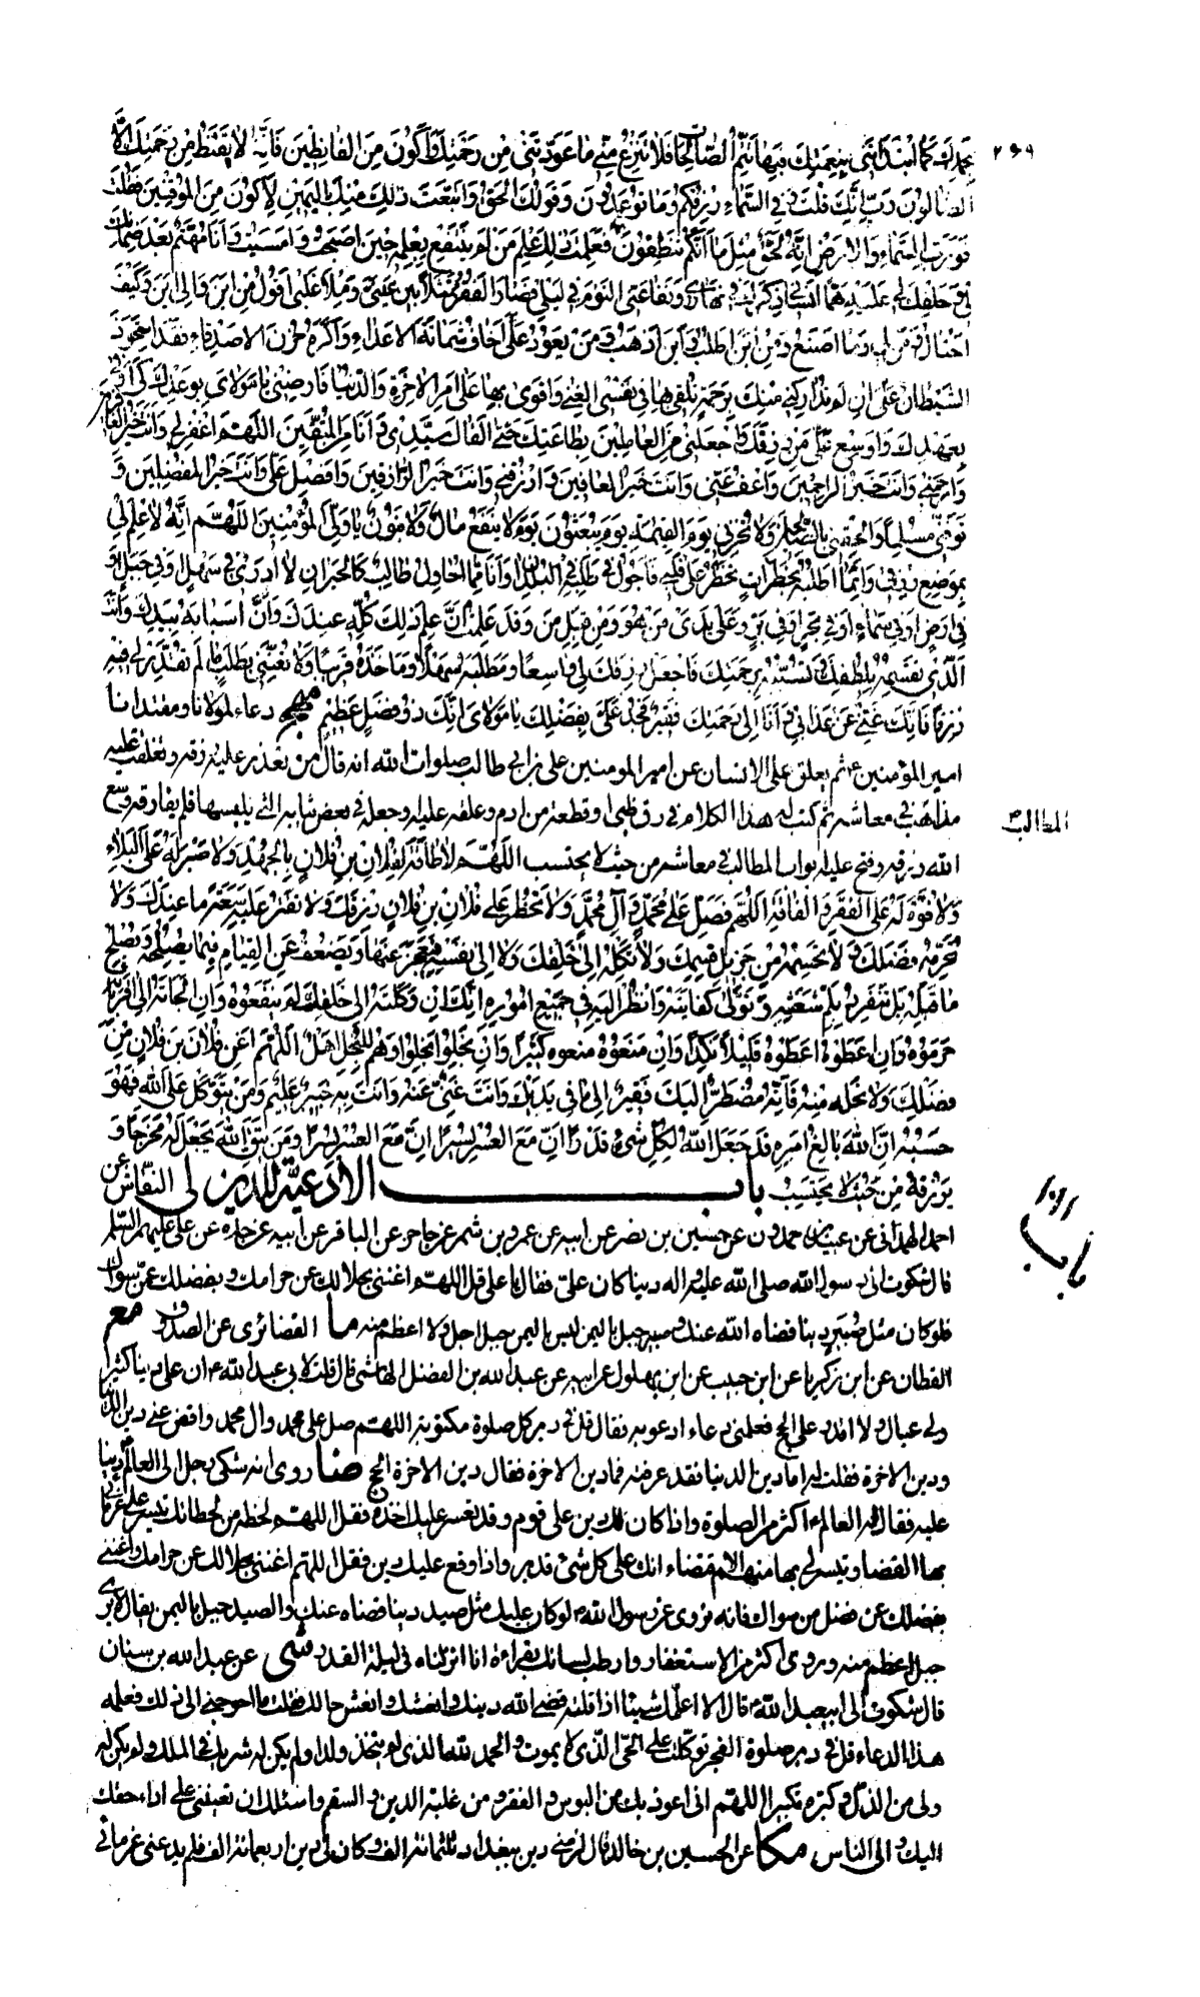 ٢٦٩
بحمدك كما ابتدأتني بنعمتك فبها تتم الصالحات فلا تنزع مني ما عودتني من رحمتك فأكون من القانطين فانه لا يقنط من رحمتك الا
الضالون رب انك قلت في السماء رزقكم وما توعدون وقولك الحق واتبعت ذلك منك باليمين لأكون من الموقنين فقلت
فورب السماء والارض انه لحق مثل ما انكم تنطقون فعلمت ذلك علم من لم ينتفع بعلمه حين اصبحت وامسيت وانا مهتم بعد ضمانك
لي وحلفك لي عليه هما انساني ذكرك في نهاري ونفى عني النوم في ليلي فصار الفقر ممثلا بين عيني وملأ قلبي اقول من اين والى اين وكيف
احتال ومن لي وما اصنع ومن اين اطلب واين اذهب ومن يعود علي اخاف شماتة الاعداء واكره حزن الاصدقاء فقد استحوذ
الشيطان علي ان لم تداركني منك برحمة تلقي بها في نفسي الغنى واقوى بها على امر الاخرة والدنيا فارضني يا مولاي بوعدك كي اوفي
بعهدك واوسع علي من رزقك واجعلني من العاملين بطاعتك حتى القاك سيدي وانا من المتقين اللهم اغفر لي وانت خير الغافرين
وارحمني وانت خير الراحمين واعف عني وانت خير العافين وارزقني وانت خير الرازقين وافضل علي وانت خير المفضلين و
توفني مسلما والحقني بالصالحين ولا تخزني يوم القيمة يوم يبعثون يوم لا ينفع مال ولا بنون يا ولي المؤمنين اللهم انه لا علم لي
بموضع رزقي وانما اطلبه بخطرات تخطر على قلبي فاجول في طلبه في البلدان وانا مما احاول طالب كالحيران لا ادري في سهل او في جبل او
في ارض او في سماء او في بحر او في بر وعلى يدي من هو ومن قبل من وقد علمت ان علم ذلك كله عندك وان اسبابه بيدك وانت
الذي تقسمه بلطفك وتسببه برحمتك فاجعل رزقك لي واسعا ومطلبه سهلا وماخذه قريبا ولا تعنني بطلب ما لم تقدر لي فيه
رزقا فانك غني عن عذابي وانا الى رحمتك فقير فجد علي بفضلك يا مولاي انك ذو فضل عظيم مهج دعاء لمولانا ومقتدانا
امير المؤمنين ع ثم يعلق على الانسان عن امير المومنين علي بن ابي طالب صلوات الله انه قال من تعذر عليه رزقه وتغلقت عليه
مذاهب في معاشه ثم كتب له هذا الكلام في رق ظبي او قطعة من ادم وعلقه عليه وجعله في بعض ثيابه التي يلبسها فلم يفارقه وسع
المطالب
الله رزقه وفتح عليه ابواب المطالب في معاشه من حيث لا يحتسب اللهم لا طاقة لفلان بن فلان بالجهد ولا صبر له على البلاء
ولا قوة له على الفقر والفاقة اللهم فصل على محمد وآل محمد ولا تحظر على فلان بن فلان رزقك ولا تقتر عليه سعة ما عندك ولا
تحرمه فضلك ولا تحسمه من جزيل قسمك ولا تكله الى خلقك ولا الى نفسه فيعجز عنها ويضعف عن القيام فيما يصلحه ويصلح
ما قبله بل تنفرد بلم شعثه وتولي كفايته وانظر اليه في جميع اموره انك ان وكلته الى خلقك لم ينفعوه وان الجأته الى اقربائه
حرموه وان اعطوه اعطوه قليلا نكدا وان منعوه منعوه كثيرا وان بخلوا بخلوا وهم للبخل اهل اللهم اغن فلان بن فلان من
فضلك ولا تخله منه فانه مضطر اليك فقير الى ما في يديك وانت غني عنه وانت به خبير عليم ومن يتوكل على الله فهو
حسبه ان الله بالغ امره قد جعل الله لكل شيء قدرا ان مع العسر يسرا ان مع العسر يسرا ومن يتق الله يجعل له مخرجا و
يرزقه من حيث لا يحتسب باب الأدعية للدين لي النقاش عن
باب
احمد الهمداني عن عبيد بن حمدون عن حسين بن نصر عن ابيه عن عمرو بن شمر عن جابر عن الباقر عن ابيه عن جده عن علي عليهم السلم
قال شكوت الى رسول الله صلى الله عليه واله دينا كان علي فقال يا علي قل اللهم اغنني بحلالك عن حرامك وبفضلك عمن سواك
فلو كان مثل صبير دينا قضاه الله عنك وصبير جبل باليمن ليس باليمن جبل اجل ولا اعظم منه ما الغضائري عن الصدوق مع
القطان عن ابن زكريا عن ابن حبيب عن ابن بهلول عن ابيه عن عبد الله بن الفضل الهاشمي قال قلت لابي عبد الله ع ان علي دينا كثيرا
ولي عيال ولا اقدر على الحج فعلمني دعاء ادعو به فقال قل في دبر كل صلوة مكتوبة اللهم صل على محمد وال محمد واقض عني دين الدنيا
ودين الاخرة فقلت له اما دين الدنيا فقد عرفته فما دين الاخرة فقال دين الاخرة الحج ضا روى انه شكى رجل الى العالم دينا
عليه فقال له العالم اكثر من الصلوة واذا كان لك دين على قوم وقد تعسر عليك اخذه فقل اللهم لحظة من لحظاتك تيسر على غرمائي
بها القضا وتيسر لي بها منهم الاقتضاء انك على كل شيء قدير واذا وقع عليك دين فقل اللهم اغنني بحلالك عن حرامك واغنني
بفضلك عن فضل من سواك فانه نروى عن رسول الله لو كان عليك مثل صبير دينا قضاه عنك والصبير جبل باليمن يقال لا يرى
جبل اعظم منه وروي اكثر من الاستغفار وارطب لسانك بقراءة انا انزلناه في ليلة القدر شي عن عبد الله بن سنان
قال شكوت الى ابي عبد الله قال الا اعلمك شيئا اذا قلته قضى الله دينك وانعشك وانعش حالك فقلت ما احوجني الى ذلك فعلمه
هذا الدعاء قل في دبر صلوة الفجر توكلت على الحي الذي لا يموت والحمد لله الذي لم يتخذ ولدا ولم يكن له شريك في الملك ولم يكن له
ولي من الذل وكبره تكبيرا اللهم اني اعوذ بك من البوس والفقر ومن غلبة الدين والسقم واسئلك ان تعينني على اداء حقك
اليك والى الناس مكا عن الحسين بن خالد قال لزمني دين ببغداد ثلثمائة الف وكان لي دين اربعمائة الف فلم يدعني غرمائي